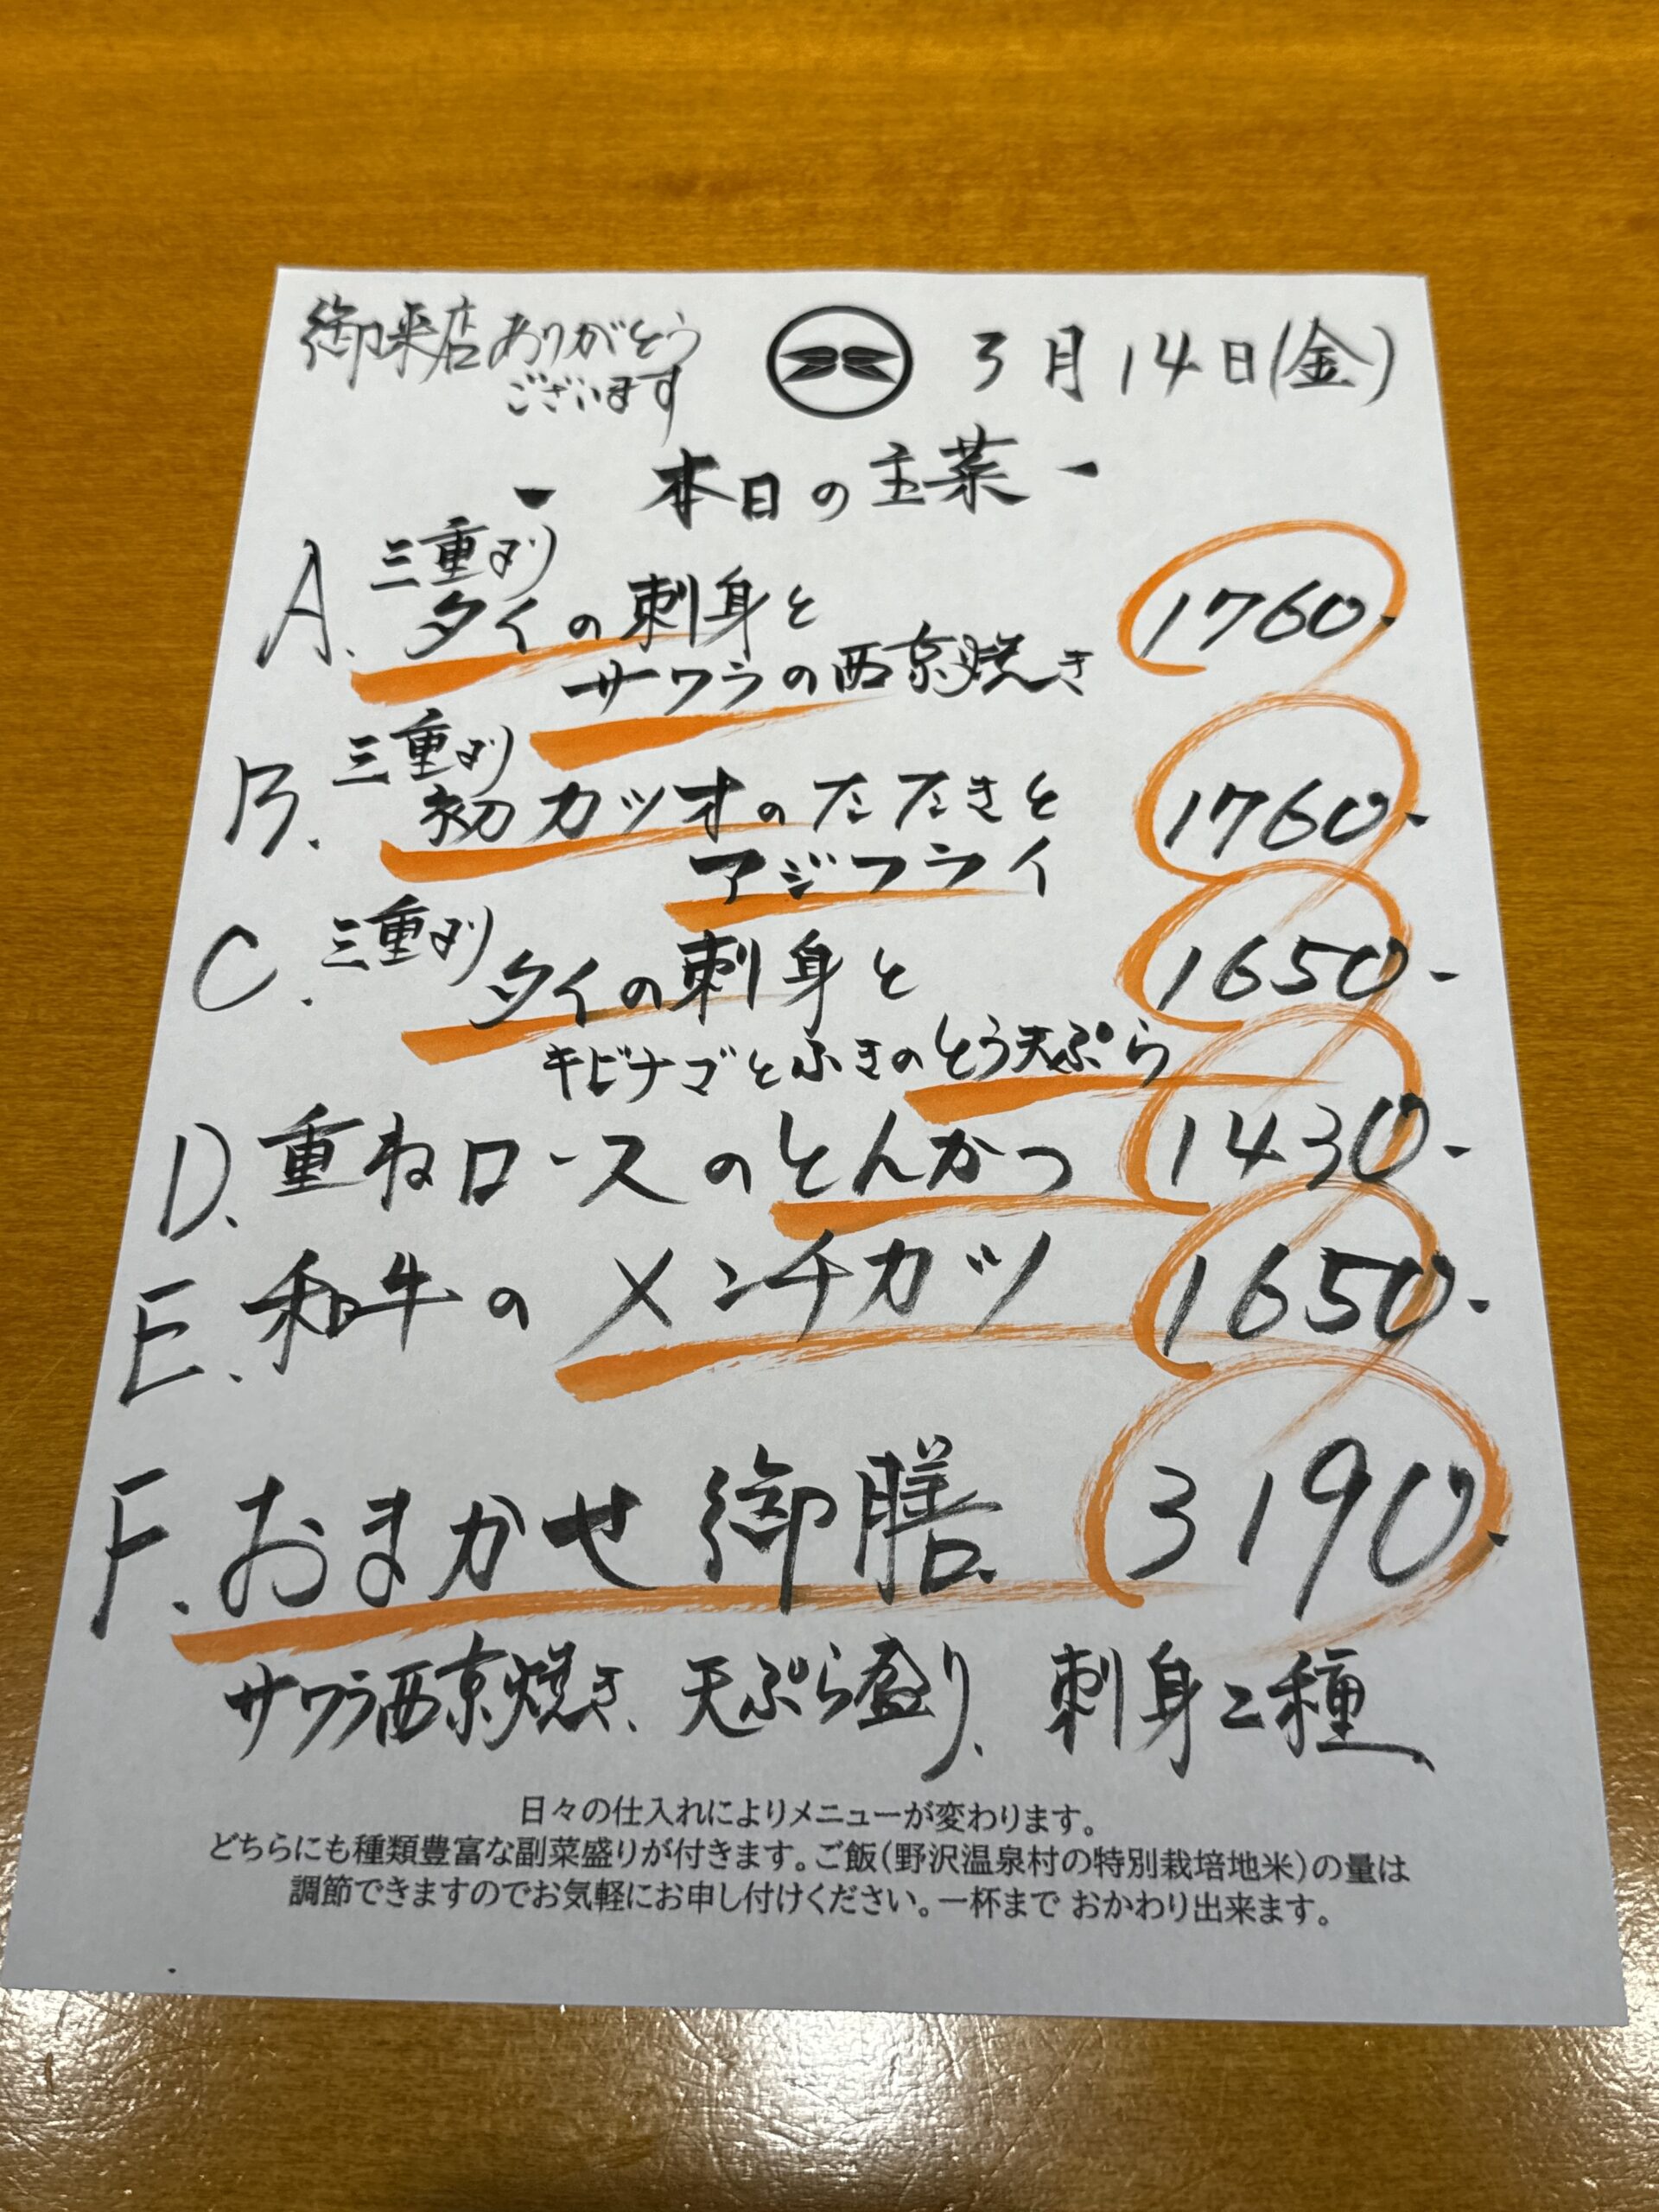 御来店ありがとう
ございます
3月14日(金)
- 本日の主菜 -
A. 三重より
タイの刺身と
サワラの西京焼き
1760.
B. 三重より
初カツオのたたきと
アジフライ
1760-
C. 三重より
タイの刺身と
キビナゴとふきのとう天ぷら
1650-
D. 重ねロースのとんかつ 1430-
E. 和牛のメンチカツ 1650-
F. おまかせ御膳 3190-
サワラ西京焼き、天ぷら盛り、刺身二種、
日々の仕入れによりメニューが変わります。
どちらにも種類豊富な副菜盛りが付きます。ご飯(野沢温泉村の特別栽培地米)の量は
調節できますのでお気軽にお申し付けください。一杯まで おかわり出来ます。